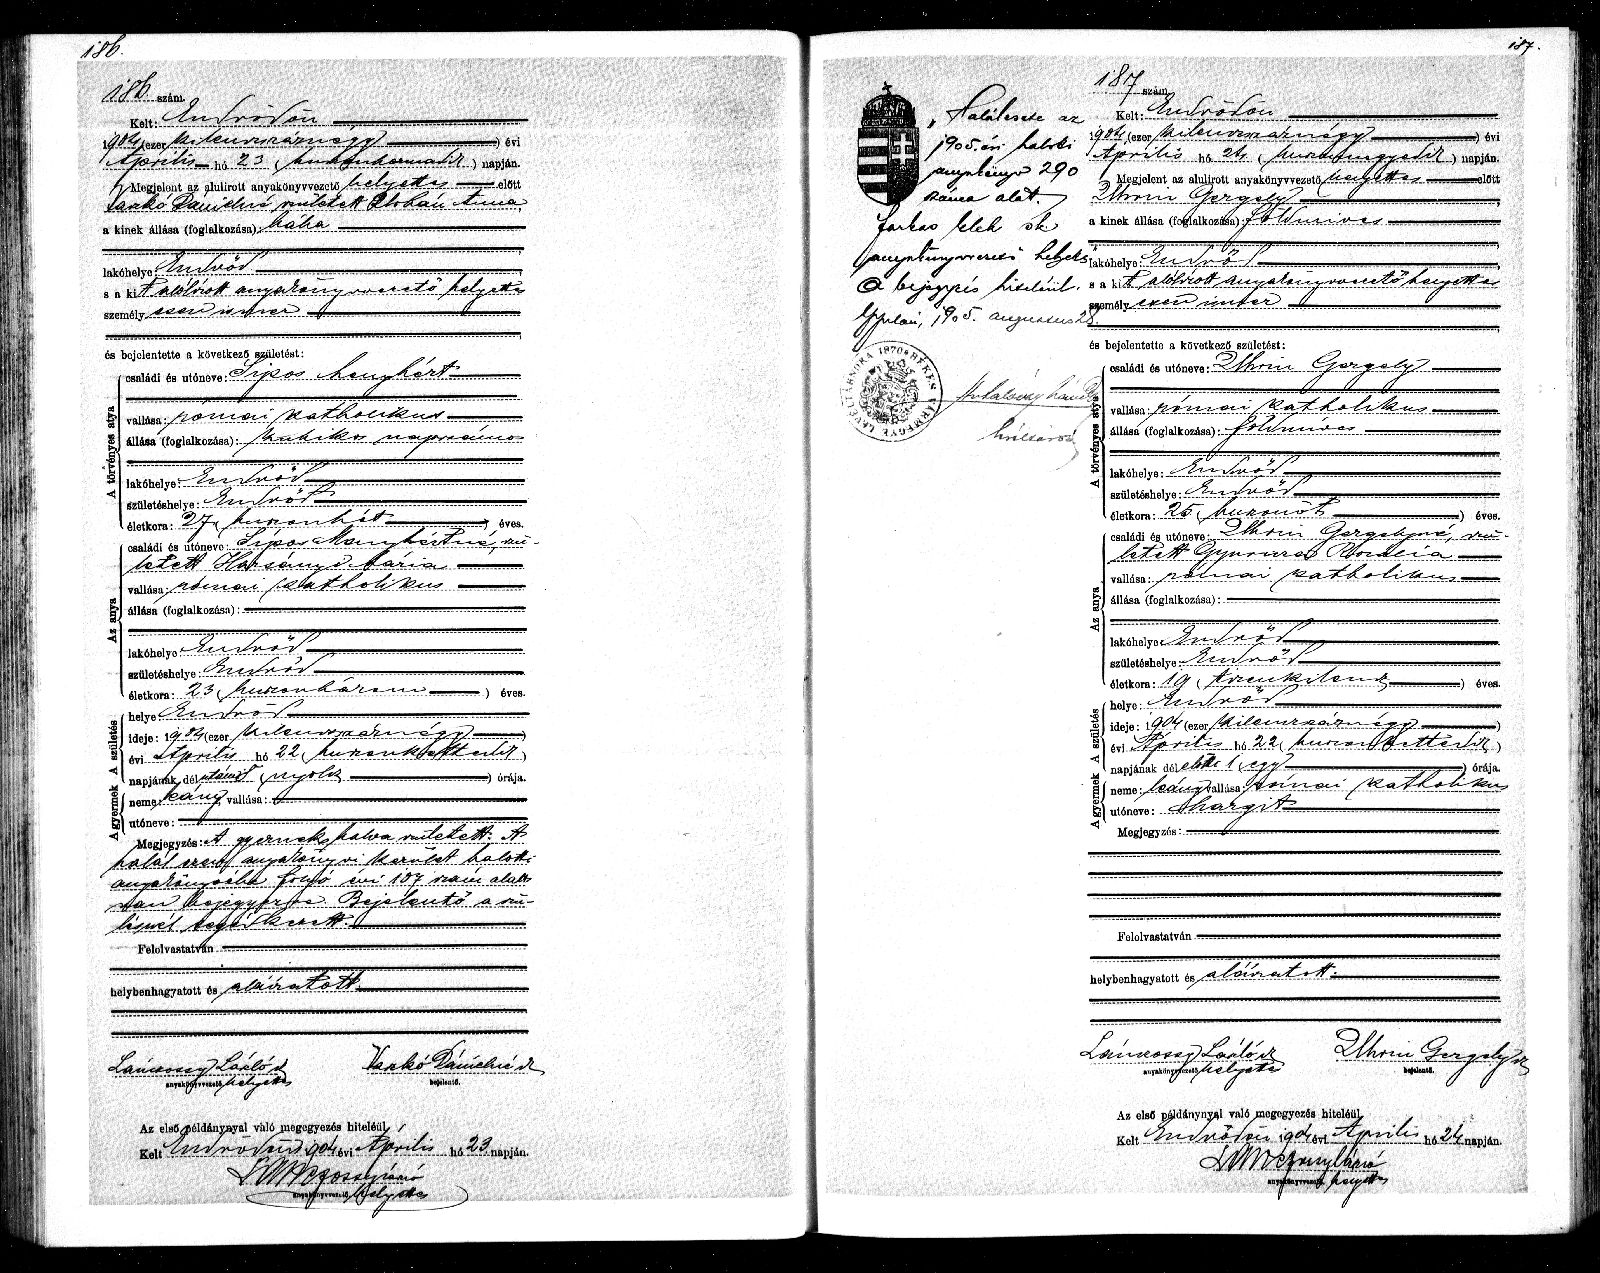 186.
186. szám.
Kelt: Endrődön
1904 (ezer kilenczszáznégy) évi
Április hó 23 (huszonharmadik) napján.
Megjelent az alulirott anyakönyvvezető helyettes előtt
Dánielné született Anna
a kinek állása (foglalkozása): bába
lakóhelye Endrőd
s a kit alólirott anyakönyvvezető helyettes
személyesen ismer
és bejelentette a következő születést:
A törvényes atya
családi és utóneve: Sipos Menyhért
vallása: római katholikus
állása (foglalkozása): kubikos napszámos
lakóhelye: Endrőd
születéshelye: Endrőd
életkora: 27 (huszonhét) éves.
Az anya
családi és utóneve: Sipos Menyhértné, szü-
letett Harsányi Mária
vallása: római katholikus
állása (foglalkozása):
lakóhelye Endrőd
születéshelye: Endrőd
életkora: 23 (huszonhárom) éves.
A gyermek A születés
helye Endrőd
ideje: 1904 (ezer kilenczszáznégy)
évi Április hó 22 (huszonkettedik)
napjának délutáni (nyolcz) órája.
neme: leány vallása:
utóneve:
Megjegyzés: A gyermek halva született. A
halál ezen anyakönyvi kerület halotti
anyakönyvébe folyó évi 107 szám alatt
van bejegyezve. Bejelentő a szü-
lésnél segédkezett.
Felolvastatván
helybenhagyatott és aláiratott.
Lánczossy László
anyakönyvvezető helyettes
Dánielné
bejelentő.
Az első példánynyal való megegyezés hiteléül
Kelt Endrődön 1904 évi Április hó 23 napján.
Lánczossy László
anyakönyvvezető helyettes
187.
„Halálesete az
1905. évi halotti
anyakönyv 290
száma alatt.
Farkas Elek sk
anyakönyvvezető helyettes"
A bejegyzés hiteléül.
Gyulán, 1905. augusztus 28.
BÉKÉS VÁRMEGYE LEVÉLTÁRNOKA 1870
187 szám.
Kelt: Endrődön
1904 (ezer kilenczszáznégy) évi
Április hó 24 (huszonnegyedik) napján.
Megjelent az alulirott anyakönyvvezető helyettes előtt
Gergely
a kinek állása (foglalkozása): földmives
lakóhelye: Endrőd
s a kit alólirott anyakönyvvezető helyettes
személyesen ismer
és bejelentette a következő születést:
A törvényes atya
családi és utóneve: Gergely
vallása: római katholikus
állása (foglalkozása): földmives
lakóhelye: Endrőd
születéshelye: Endrőd
életkora: 25 (huszonöt) éves.
Az anya
családi és utóneve: Gergelyné, szü-
letett Rozália
vallása: római katholikus
állása (foglalkozása):
lakóhelye: Endrőd
születéshelye: Endrőd
életkora: 19 (tizenkilencz) éves.
A gyermek A születés
helye: Endrőd
ideje: 1904 (ezer kilenczszáznégy)
évi Április hó 22 (huszonkettedik)
napjának délelőtti 1 (egy) órája.
neme: leány vallása: római katholikus
utóneve: Margit
Megjegyzés:
Felolvastatván
helybenhagyatott és aláiratott.
Lánczossy László
anyakönyvvezető helyettes
Gergely
bejelentő.
Az első példánynyal való megegyezés hiteléül
Kelt Endrődön 1904 évi Április hó 24 napján.
Lánczossy László
anyakönyvvezető helyettes